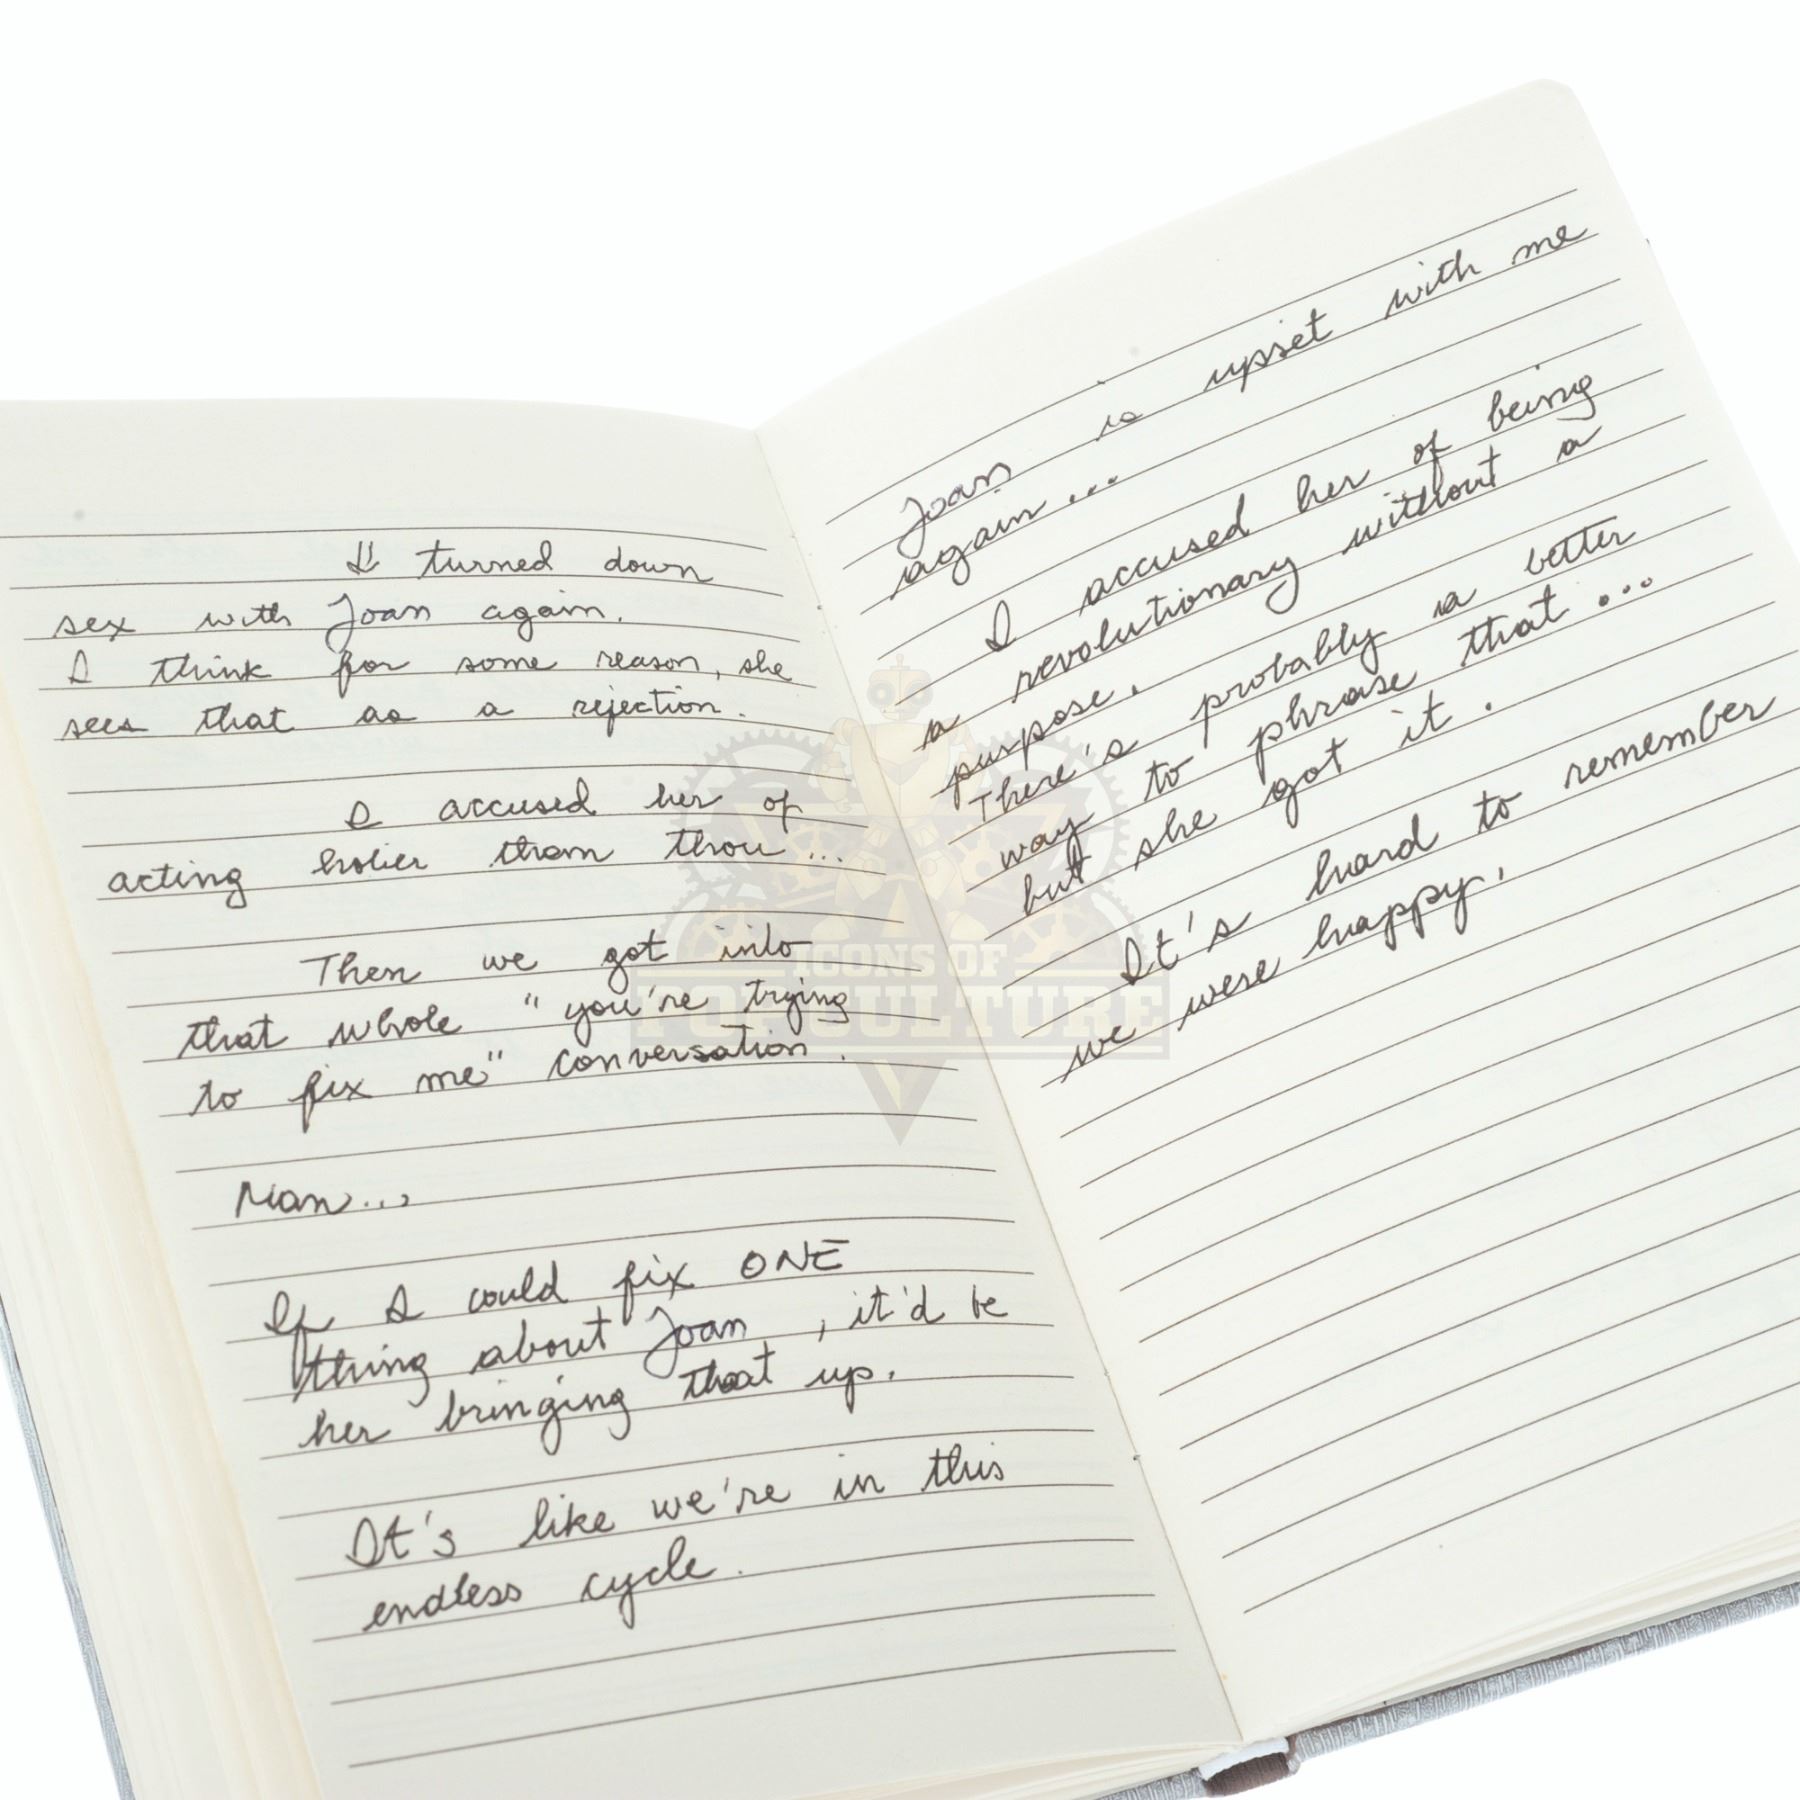 I turned down
sex with Joan again.
I think for some reason, she
sees that as a rejection.
I accused her of
acting holier than thou...
Then we got into
that whole "you're trying
to fix me" conversation.
Man...
If I could fix ONE
thing about Joan, it'd be
her bringing that up.
It's like we're in this
endless cycle.
Joan is upset with me
again...
I accused her of being
a revolutionary without a
purpose.
There's probably a better
way to phrase that...
but she got it.
It's hard to remember
we were happy.
ICONS OF
POP CULTURE